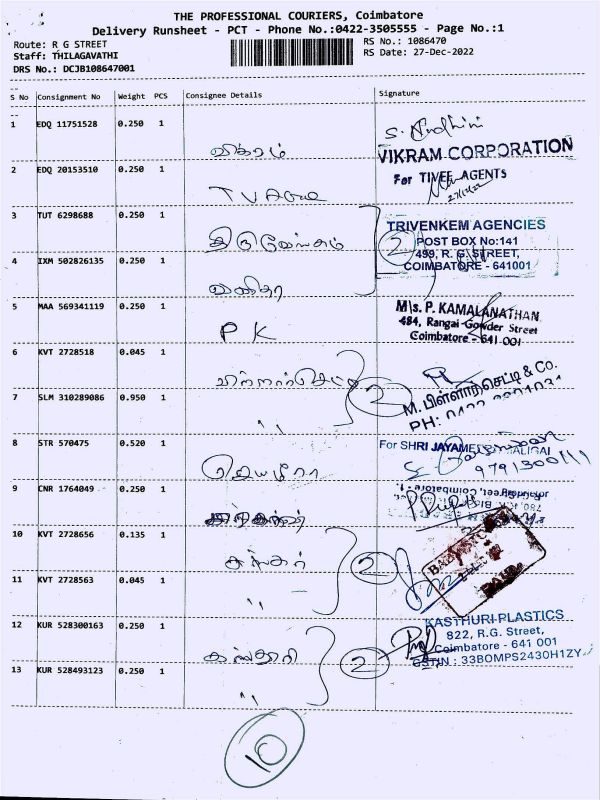 THE PROFESSIONAL COURIERS, Coimbatore
Delivery Runsheet - PCT - Phone No.:0422-3505555 - Page No.:1
Route: R G STREET
RS No.: 1086470
Staff: THILAGAVATHI
RS Date: 27-Dec-2022
DRS No.: DCJB108647001
S No Consignment No Weight PCS Consignee Details Signature
1 EDQ 11751528 0.250 1
விக்ரம்
VIKRAM CORPORATION
2 EDQ 20153510 0.250 1
For TIVEE AGENTS
27/12/22
TV
3 TUT 6298688 0.250 1
TRIVENKEM AGENCIES
POST BOX No:141
2
499, R. G. STREET,
4 IXM 502826135 0.250 1
COIMBATORE - 641001
வனிதா
5 MAA 569341119 0.250 1
M\s. P. KAMALANATHAN
484, Rangai Gowder Street
P K
Coimbatore - 641 001
6 KVT 2728518 0.045 1
2
M. பிள்ளார்செட்டி & Co.
7 SLM 310289086 0.950 1
PH: 0422
"
8 STR 570475 0.520 1
For SHRI JAYAM
9791300111
ஜெயஸ்ரீ
9 CNR 1764049 0.250 1
10 KVT 2728656 0.135 1
2
11 KVT 2728563 0.045 1
"
12 KUR 528300163 0.250 1
KASTHURI PLASTICS
822, R.G. Street,
கஸ்தூரி
2
Coimbatore - 641 001
GSTIN : 33BOMPS2430H1ZY
13 KUR 528493123 0.250 1
"
10